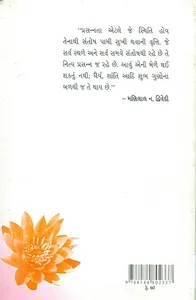 "પ્રસન્નતા એટલે જે સ્થિતિ હોય
તેનાથી સંતોષ પામી સુખી થવાની વૃત્તિ. જે
સર્વ સ્થળે અને સર્વ સમયે સંતોષથી રહે છે તે
નિત્ય પ્રસન્ન જ રહે છે. આવું એની મેળે થઈ
શકતું નથી; ધૈર્ય, શાંતિ આદિ શુભ ગુણોના
બળથી જ તે થાય છે."
– મણિલાલ ન. દ્વિવેદી